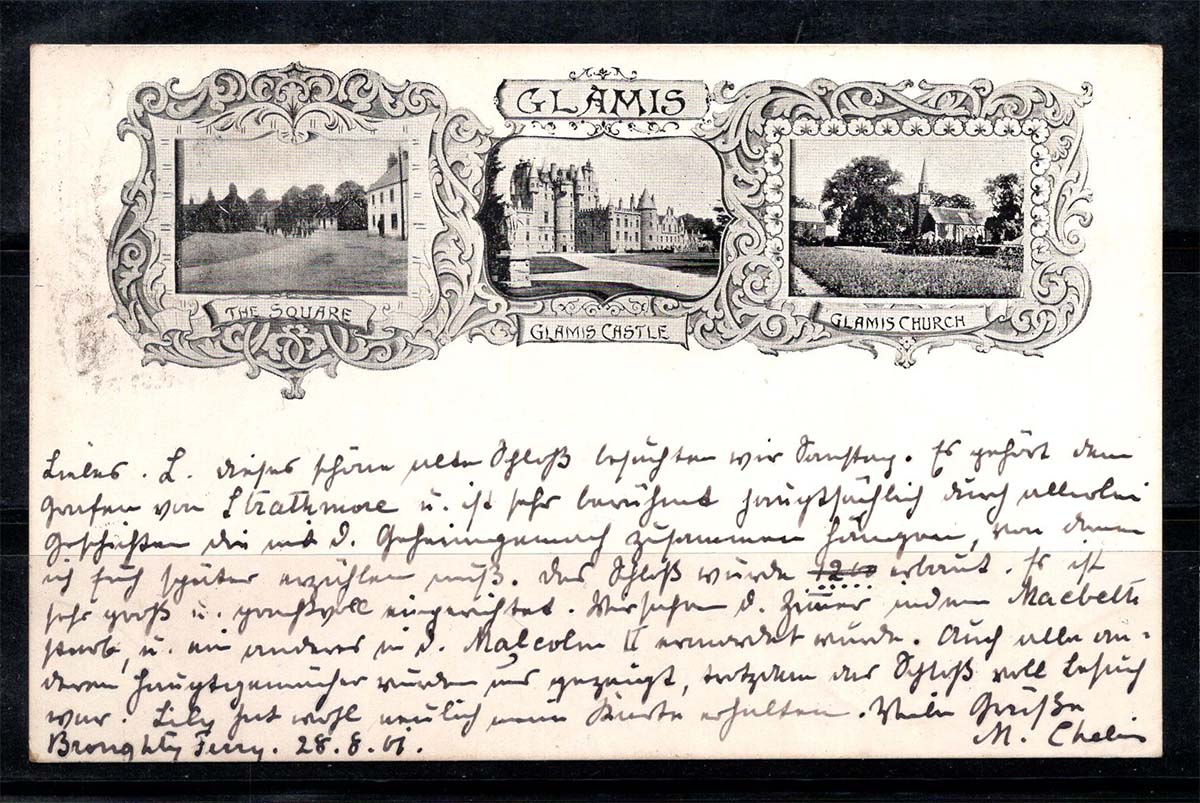 GLAMIS
THE SQUARE
GLAMIS CASTLE
GLAMIS CHURCH
Liebes. L. dieses schöne alte Schloß besuchten wir Samstag. Es gehört dem
Grafen von Strathmore u. ist sehr berühmt hauptsächlich durch allerlei
Geschichten die mit d. Geheimgemach zusammen hängen, von denen
ich Euch später erzählen muß. Das Schloß wurde 1260 erbaut. Es ist
sehr groß u. prachtvoll eingerichtet. Wir sahen d. Zimmer indem Macbeth
starb, u. ein anderes in d. Malcolm II ermordet wurde. Auch alle an=
deren Hauptgemächer wurden uns gezeigt, trotzdem das Schloß voll Besuch
war. Lily hat wohl neulich meine Karte erhalten. Viele Grüße
Broughty Ferry. 28.8.01. M.